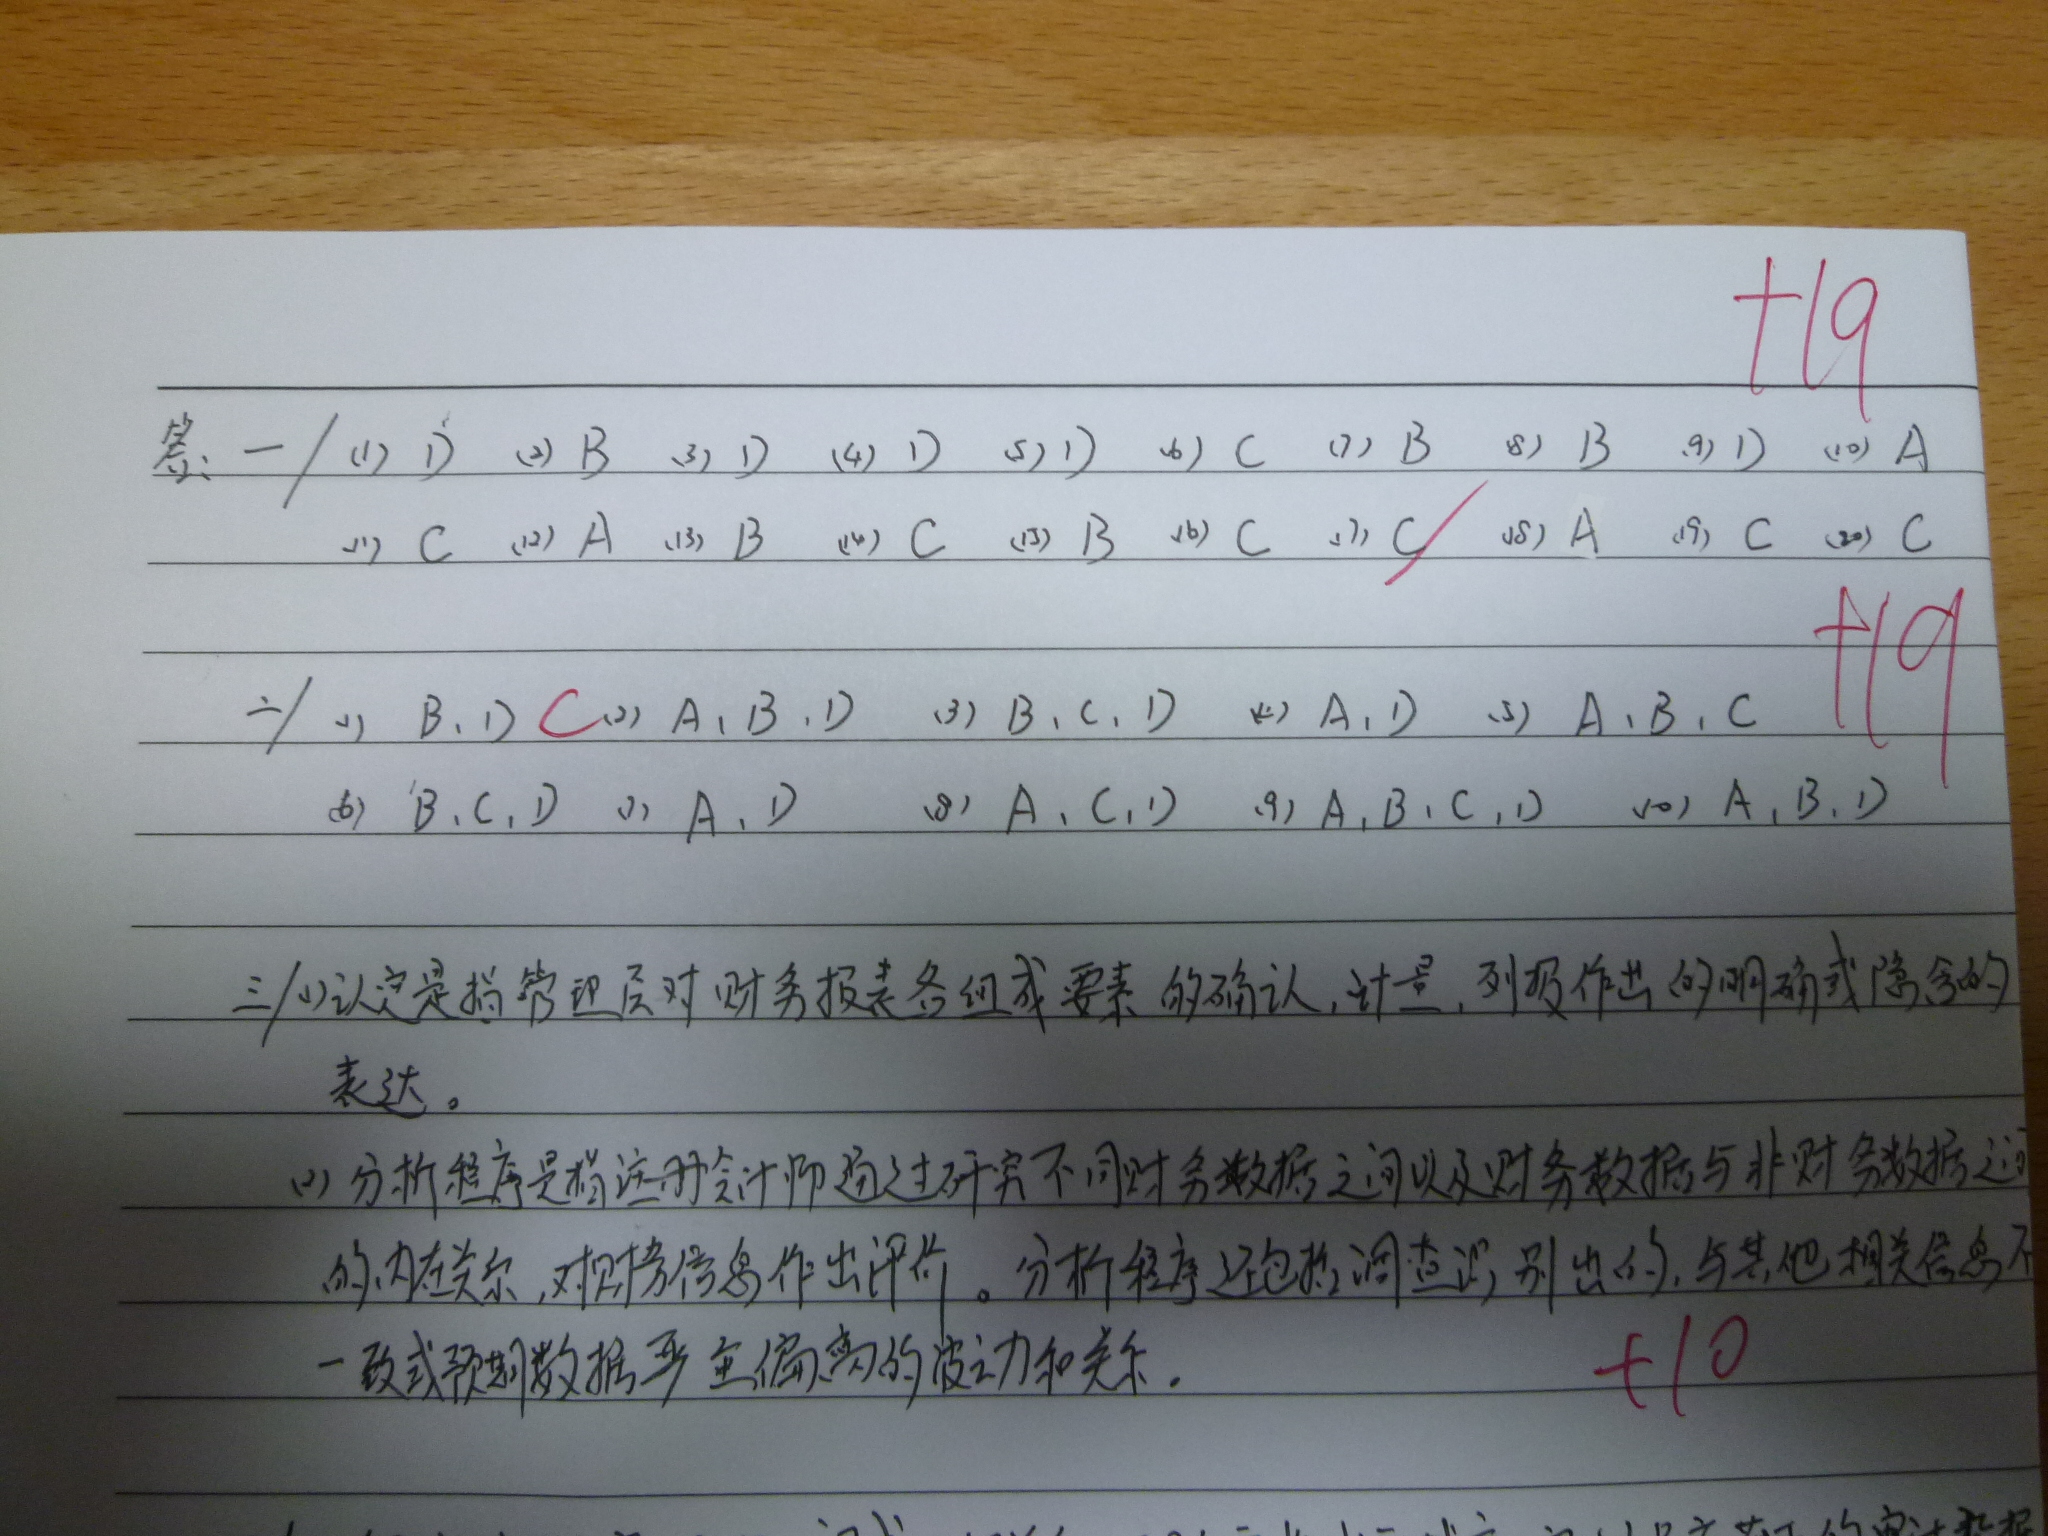 +19
答: 一/ (1) D (2) B (3) D (4) D (5) D (6) C (7) B (8) B (9) D (10) A
(11) C (12) A (13) B (14) C (15) B (16) C (17) C (18) A (19) C (20) C
+19
二/ (1) B、D C (2) A、B、D (3) B、C、D (4) A、D (5) A、B、C
(6) B、C、D (7) A、D (8) A、C、D (9) A、B、C、D (10) A、B、D
三/(1)认定是指管理层对财务报表各组成要素的确认,计量,列报作出的明确或隐含的
表达。
(2)分析程序是指注册会计师通过研究不同财务数据之间以及财务数据与非财务数据之间
的内在关系,对财务信息作出评价。分析程序还包括调查识别出的,与其他相关信息不
一致或预期数据严重偏离的波动和关系。
+10